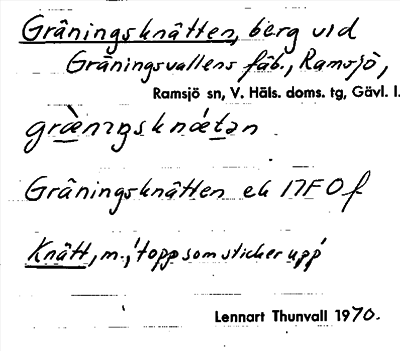 Gråningsknätten, berg vid
Gråningsvallens fäb., Ramsjö,
Ramsjö sn, V. Häls. doms. tg, Gävl. l.
Gråningsknätten ek 17F 0f
Knätt, m., 'topp som sticker upp'
Lennart Thunvall 1970.